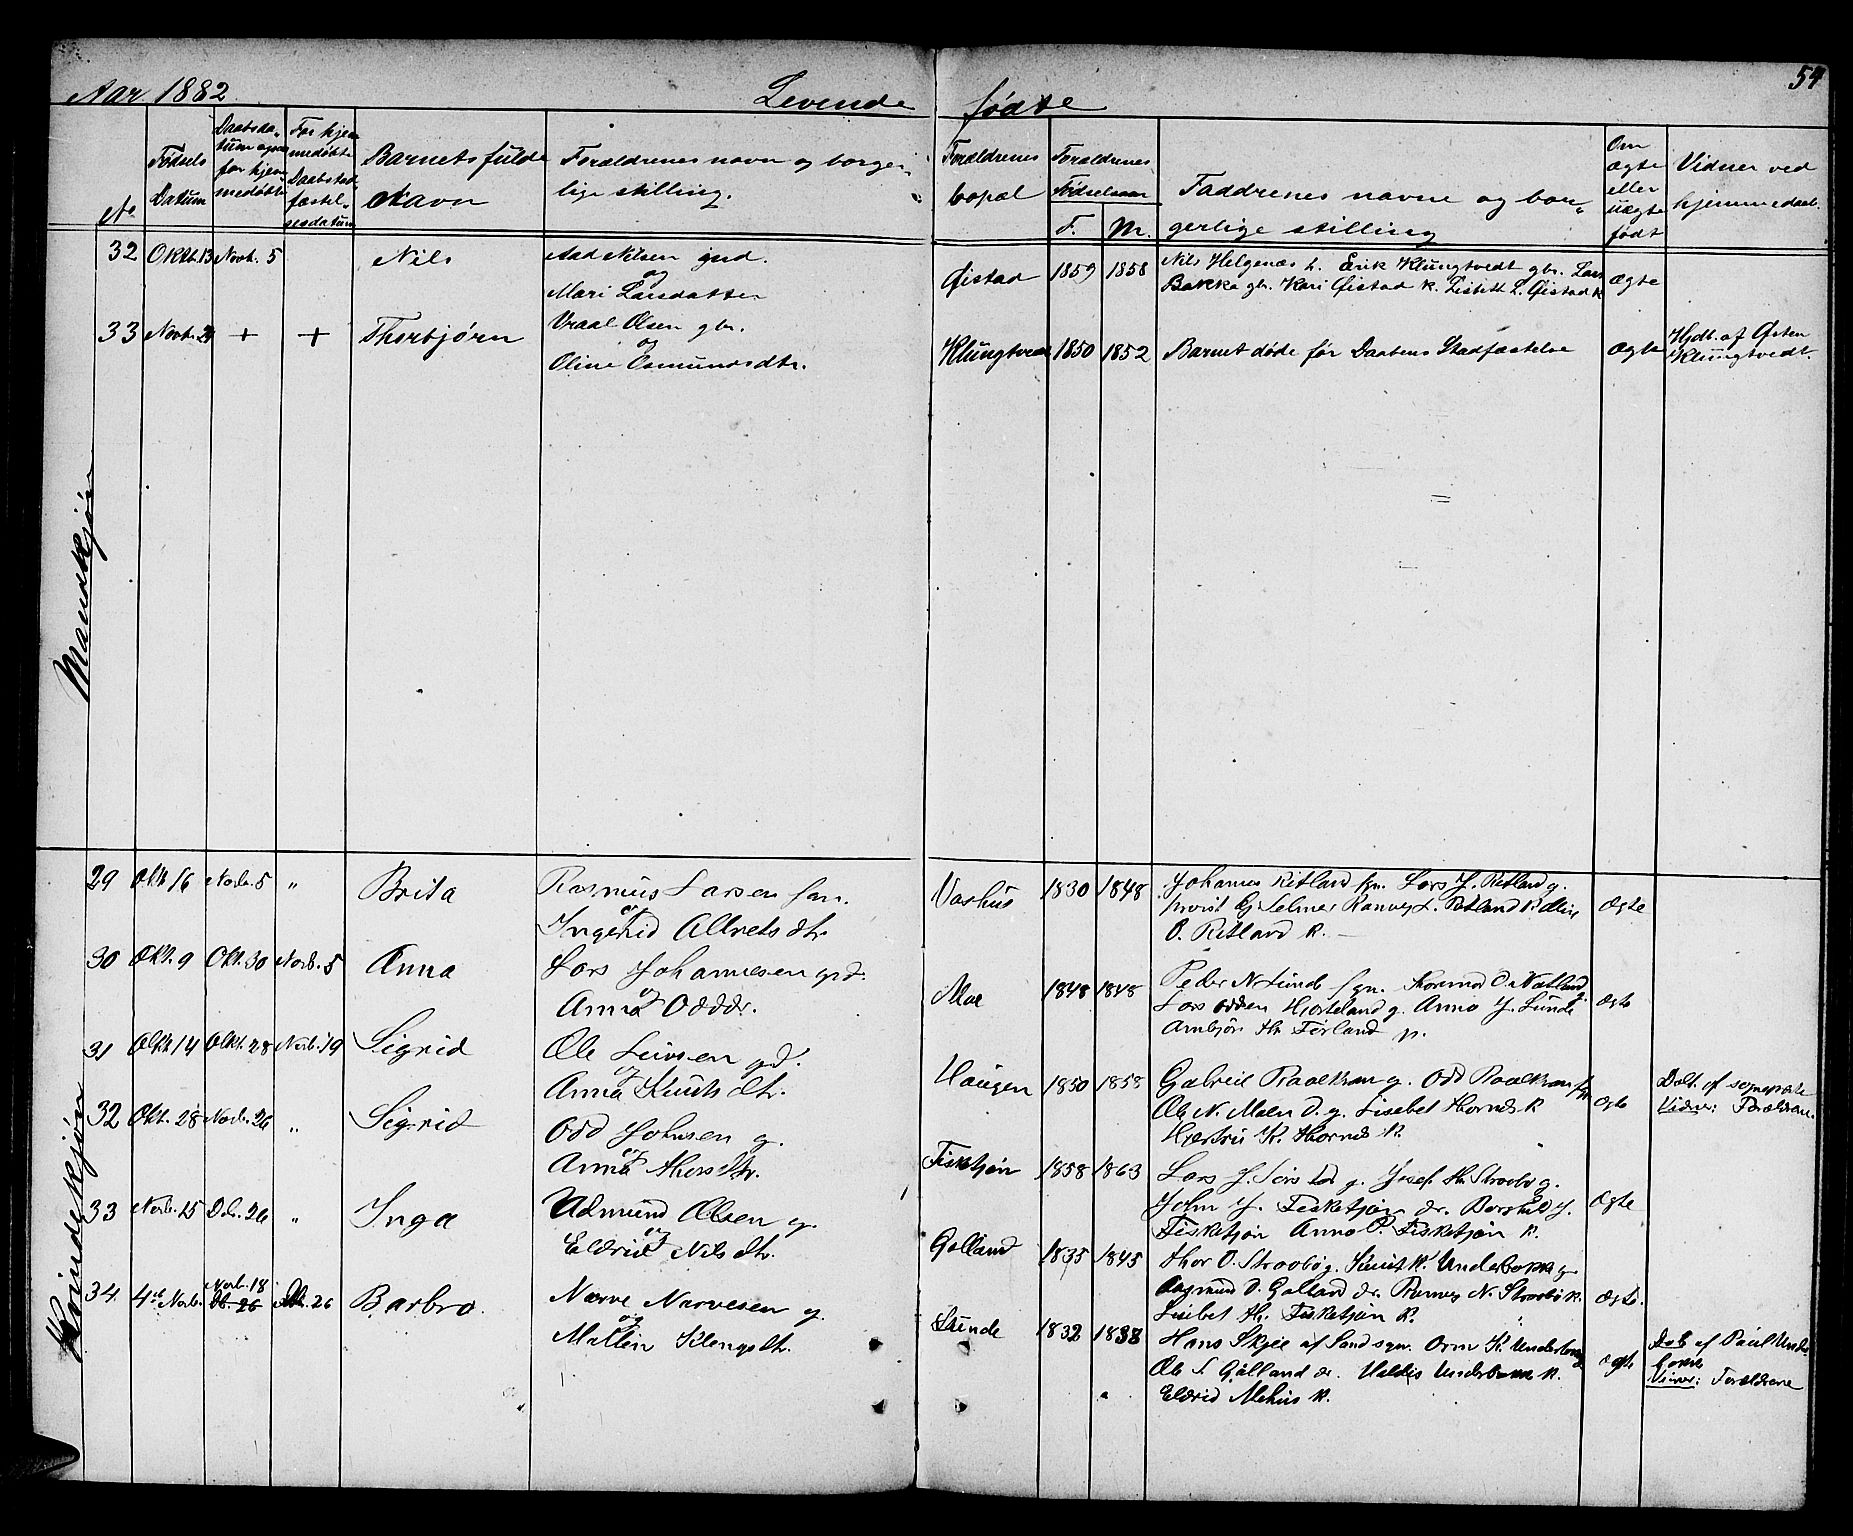 Aar 1882
Levende
fødte
54
No
Fødsels
Datum
Daabsda-
tum ogsaa
for hjem-
medøbte
For hjem-
medøbte
Daabstad-
fæstel-
sesdatum
Barnets fulde
Navn
Forældrenes navn og borger-
lige stilling.
Forældrenes
bopæl
Forældrenes
Fødselsaar
F.
M.
Faddrenes navne og bor-
gerlige stilling
Om
ægte
eller
uægte
født
Vidner ved
hjemmedaab.
Mandkjøn
32 Oktb. 13 Novb. 5 Nils
Aad Nilsen gmd.
og
Mari Larsdatter
Øistad 1859 1858
Nils Helgenæs L. Erik Klungtvedt gbr. Lars
Bakka gbr. Kari Øistad k. Lisbeth L. Øistad k
Ægte
33 Novb. + + Thorbjørn
Vraal Olsen gbr.
og
Oline Osmundsdtr.
Klungtvedt 1850 1852 Barnet døde før Daabens Stadfæstelse Ægte
Hjdt. af Østen
Klungtvedt.
Kvindekjøn
29 Okt 16 Novb. 5 " Brita
Rasmus Larsen
og
Ingerid Allretsdtr.
Vashus 1830 1848
Johannes Ritland Lars J. Ritland g.
Selmer Ritland k
O. Ritland k.
Ægte
30 Okt. 9 Okt. 30 Novb. 5 Anna
Lars Johannesen grd.
og
Anna Odddr.
Moe 1848 1848
Peder N. Lunde Thormod O. Natland
Lars Odden Hjorteland g. Anna J. Lunde
Ambjør Th. Førland p.
Ægte
31 Okt 14 Okt. 28 Novb. 19 Sigrid
Ole Leivsen gd.
og
Anna Knutsdtr.
Haugen 1850 1858
Gabriel Raalkvam g. Odd Raalkvam
Ole N. Moen D. g. Lisebet Hornes k
K. Hornes k.
Ægte
Døbt. af sognepræste
Vidner: Forældrene.
32 Okt. 28 Novb. 26 " Sigrid
Odd Johnsen g.
og
Anna Thorsdtr.
Fisketjøn 1858 1863
Lars J. g. Josef Th. Straabø g.
John J. Fisketjøn dr. Borghild J.
Fisketjøn Anna P. Fisketjøn k.
Ægte
33 Novb. 15 Deb. 26 " Inga
Udmund Olsen g.
og
Eldrid Nilsdtr.
Galland 1835 1845
Thor O. Straabø g. K. Underbakke g
Aagmund O. Galland dr. Ranveg N. Straabø k.
Lisebet Th. Fisketjøn k.
Ægte.
34. 4de Novb. Novb. 18 Db. 26 Db. 26 Barbro.
Narve Narvesen g.
og
Mallin Klengsdtr.
Lunde 1832 1838
Hans Skjee af Sand sgn. Orm K. Underbakke
Ole S. Galland dr. Valdis Underbakke k.
Eldrid Mehus k.
ægte
Døb. af Paul Under
bakke
Vidner: Forældrene